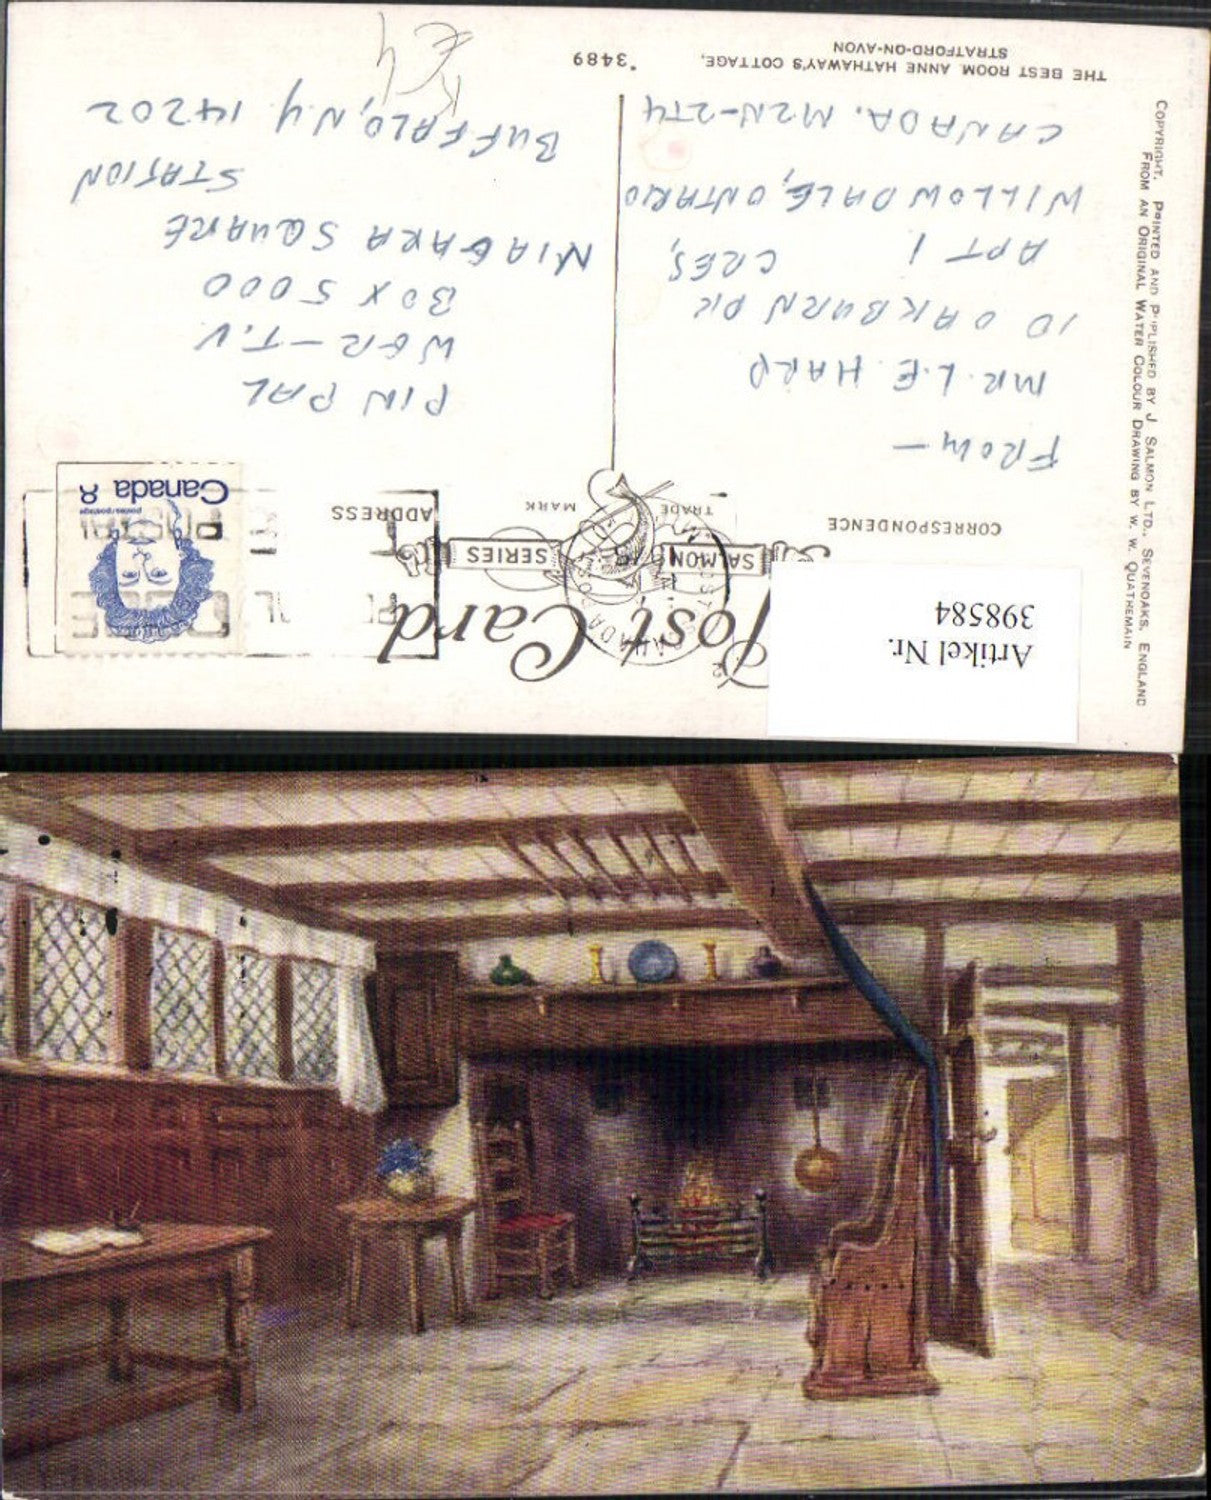 Artikel Nr.
398584
Post Card
SALMON SERIES
TRADE MARK
CORRESPONDENCE
ADDRESS
Canada 8
postes/postage
FROM—
MR. L.E. HARD
10 OAKBURN DR
APT 1 CRES,
WILLOWDALE, ONTARIO
CANADA. M2N-2T4
PIN PAL
WGR-T.V.
BOX 5000
NIAGARA SQUARE
STATION
BUFFALO, N.Y. 14202
THE BEST ROOM, ANNE HATHAWAY'S COTTAGE,
STRATFORD-ON-AVON
*3489
COPYRIGHT. PRINTED AND PUBLISHED BY J. SALMON LTD., SEVENOAKS, ENGLAND
FROM AN ORIGINAL WATER COLOUR DRAWING BY W. W. QUATREMAIN